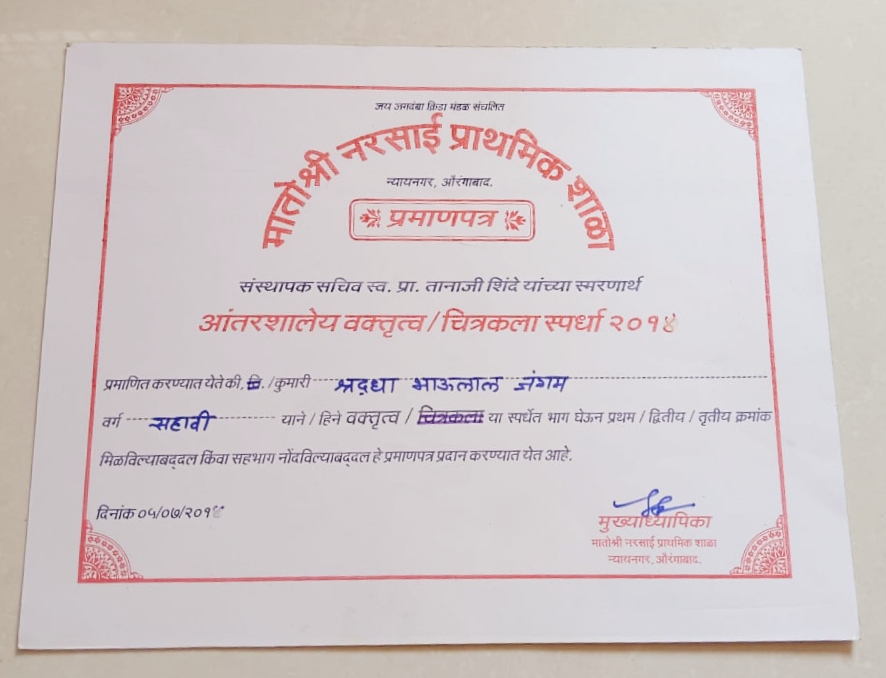 जय जगदंबा क्रिडा मंडळ संचलित
मातोश्री नरसाई प्राथमिक शाळा
न्यायनगर, औरंगाबाद.
प्रमाणपत्र
संस्थापक सचिव स्व. प्रा. तानाजी शिंदे यांच्या स्मरणार्थ
आंतरशालेय वक्तृत्व / चित्रकला स्पर्धा २०१४
प्रमाणित करण्यात येते की, चि. /कुमारी श्रद्धा भाऊलाल जंगम
वर्ग सहावी याने / हिने वक्तृत्व / चित्रकला या स्पर्धेत भाग घेऊन प्रथम / द्वितीय / तृतीय क्रमांक
मिळविल्याबद्दल किंवा सहभाग नोंदविल्याबद्दल हे प्रमाणपत्र प्रदान करण्यात येत आहे.
दिनांक ०५/०७/२०१४
मुख्याध्यापिका
मातोश्री नरसाई प्राथमिक शाळा
न्यायनगर, औरंगाबाद.